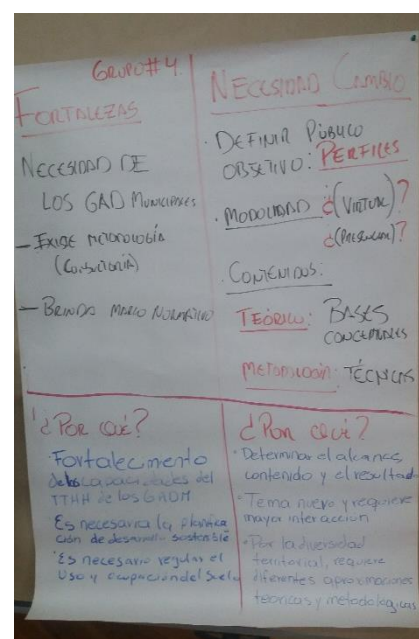 GRUPO #4.
FORTALEZAS
NECESIDAD DE
LOS GAD MUNICIPALES
- EXIGE METODOLOGÍA
(CONSULTORÍA)
- BRINDA MARCO NORMATIVO
NECESIDAD CAMBIO
· DEFINIR PÚBLICO
OBJETIVO: PERFILES
· MODALIDAD ¿(VIRTUAL)?
¿(PRESENCIAL)?
· CONTENIDOS:
TEÓRICO: BASES
CONCEPTUALES
METODOLOGÍA: TÉCNICAS
¿POR QUÉ?
· Fortalecimiento
de las capacidades del
TTHH de los GADM
Es necesaria la planifica
ción de desarrollo sostenible
· Es necesario regular el
uso y ocupación del suelo
¿POR QUÉ?
· Determinar el alcance,
contenido y el resultado
· Tema nuevo y requiere
mayor interacción
· Por la diversidad
territorial, requiere
diferentes aproximaciones
teóricas y metodológicas